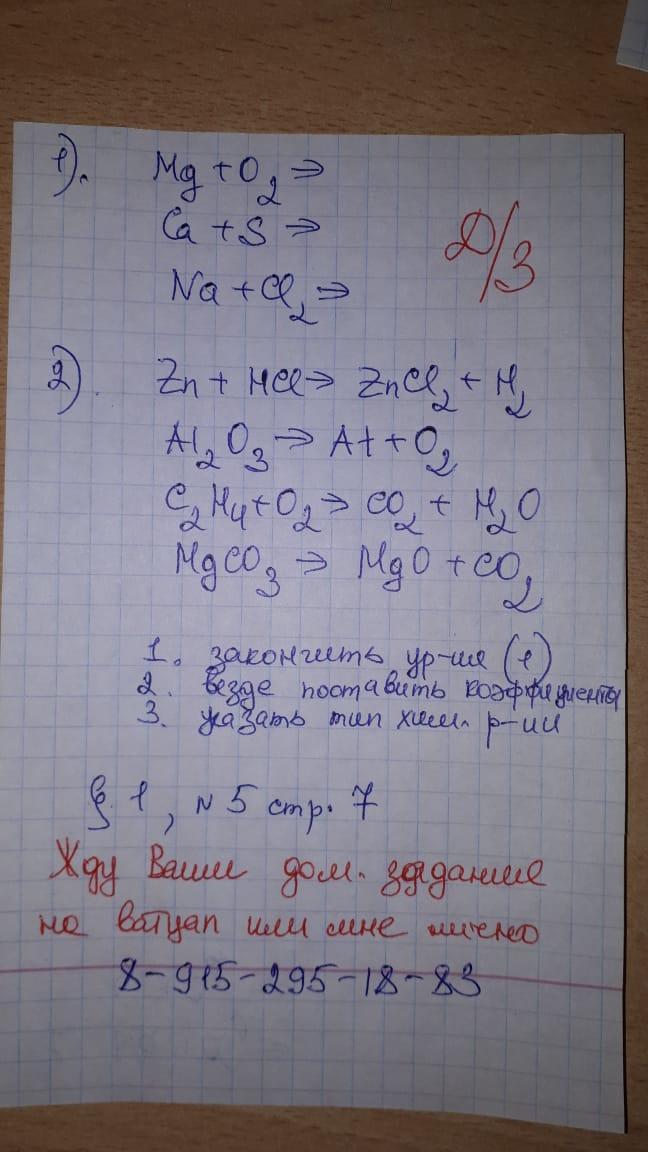 1). Mg + O2 ⇒
Ca + S ⇒
Д/З
Na + Cl2 ⇒
2). Zn + HCl ⇒ ZnCl2 + H2
Al2O3 ⇒ Al + O2
C2H4 + O2 ⇒ CO2 + H2O
MgCO3 ⇒ MgO + CO2
1. закончить ур-ия (1)
2. везде поставить коэффициенты
3. указать тип хим. р-ии
§ 1, № 5 стр. 7
Жду Ваши дом. задание
на ватцап или мне лично
8-915-295-18-83